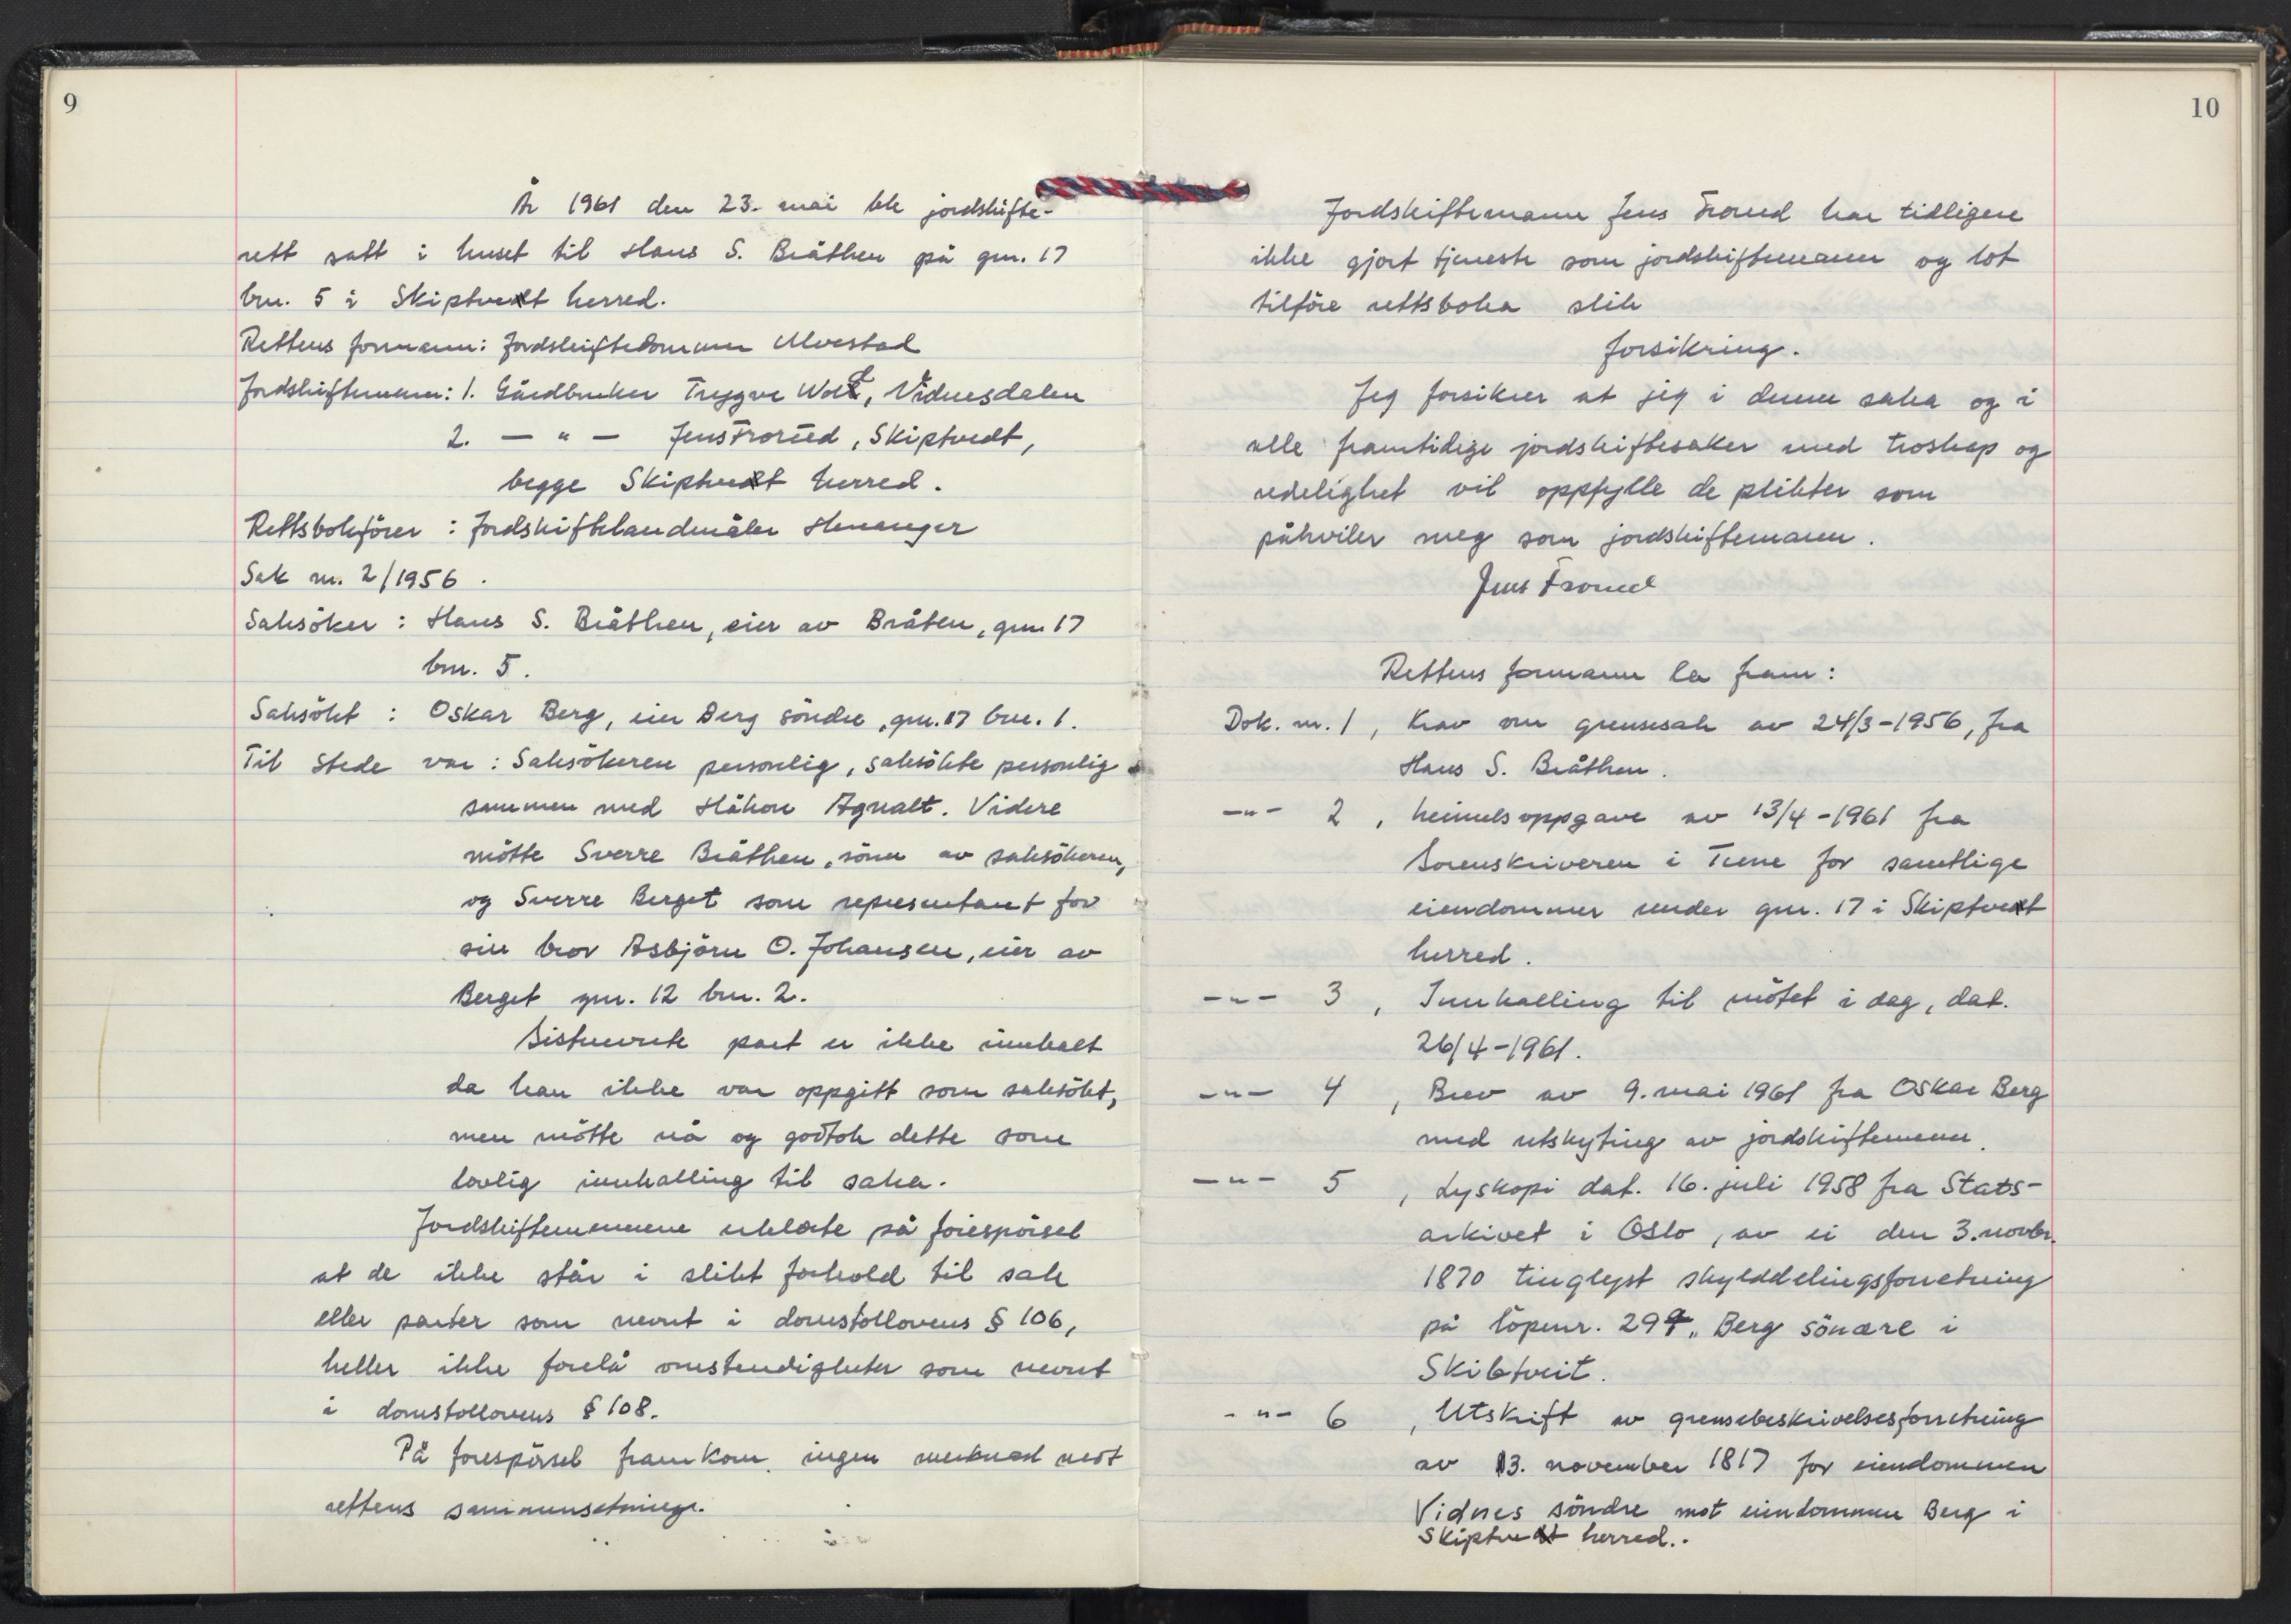 9
År 1961 den 23. mai ble jordskifte-
rett satt i huset til Hans S. Bråthen på gnr. 17
bnr. 5 i Skiptvet herred.
Rettens formann: Jordskiftedommer Ulvestad
Jordskiftemenn: 1. Gårdbruker Trygve Wold, Vidnesdalen
2. — " — Jens Frorud, Skiptvedt,
begge Skiptvet herred.
Rettsbokförer: Jordskiftelandmåler Henanger
Sak nr. 2/1956.
Saksöker: Hans S. Bråthen, eier av Bråten, gnr. 17
bnr. 5.
Saksökt: Oskar Berg, eier Berg söndre, gnr. 17 bnr. 1.
Til stede var: Saksökeren personlig, saksökte personlig
sammen med Håkon Agnalt. Videre
mötte Sverre Bråthen, sönn av saksökeren,
og Sverre Berget som representant for
sin bror Asbjörn O. Johansen, eier av
Berget gnr. 12 bnr. 2.
Sistnevnte part er ikke innkalt
da han ikke var oppgitt som saksökt,
men mötte nå og godtok dette som
lovlig innkalling til saka.
Jordskiftemennene erklærte på forespörsel
at de ikke står i slikt forhold til sak
eller parter som nevnt i domstollovens § 106,
heller ikke forelå omstendigheter som nevnt
i domstollovens § 108.
På forespörsel framkom ingen merknad mot
rettens sammensetning.
10
Jordskiftemann Jens Frorud har tidligere
ikke gjort tjeneste som jordskiftemann og lot
tilföre rettsboka slik
forsikring.
Jeg forsikrer at jeg i denne saka og i
alle framtidige jordskiftesaker med troskap og
redelighet vil oppfylle de plikter som
påhviler meg som jordskiftemann.
Jens Frorud
Rettens formann la fram:
Dok. nr. 1, Krav om grensesak av 24/3-1956, fra
Hans S. Bråthen.
—"— 2, heimelsoppgave av 13/4-1961 fra
Sorenskriveren i Tune for samtlige
eiendommer under gnr. 17 i Skiptvet
herred.
—"— 3, Innkalling til mötet i dag, dat.
26/4-1961.
—"— 4, Brev av 9. mai 1961 fra Oskar Berg
med utskyting av jordskiftemenn.
—"— 5, Lyskopi dat. 16. juli 1958 fra Stats-
arkivet i Oslo, av ei den 3. novbr.
1870 tinglyst skylddelingsforretning
på löpenr. 299, Berg söndre i
Skibtveit.
—"— 6, Utskrift av grensebeskrivelsesforretning
av 13. november 1817 for eiendommen
Vidnes söndre mot eiendommen Berg i
Skiptvet herred.